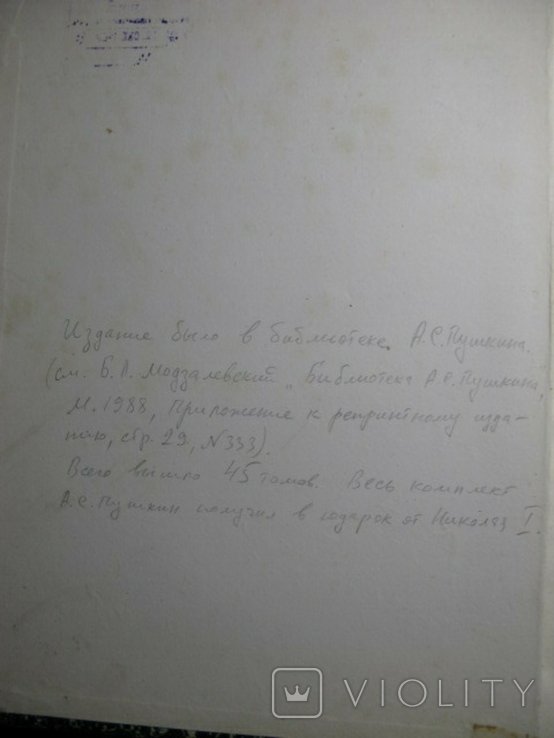 Издание было в библиотеке А.С.Пушкина.
(см. Б.Л. Модзалевский „Библиотека А.С.Пушкина,
М.1988, Приложение к репринтному изда-
нию, стр. 29, №333).
Всего вышло 45 томов. Весь комплект
А.С.Пушкин получил в подарок от Николая I.
VIOLITY